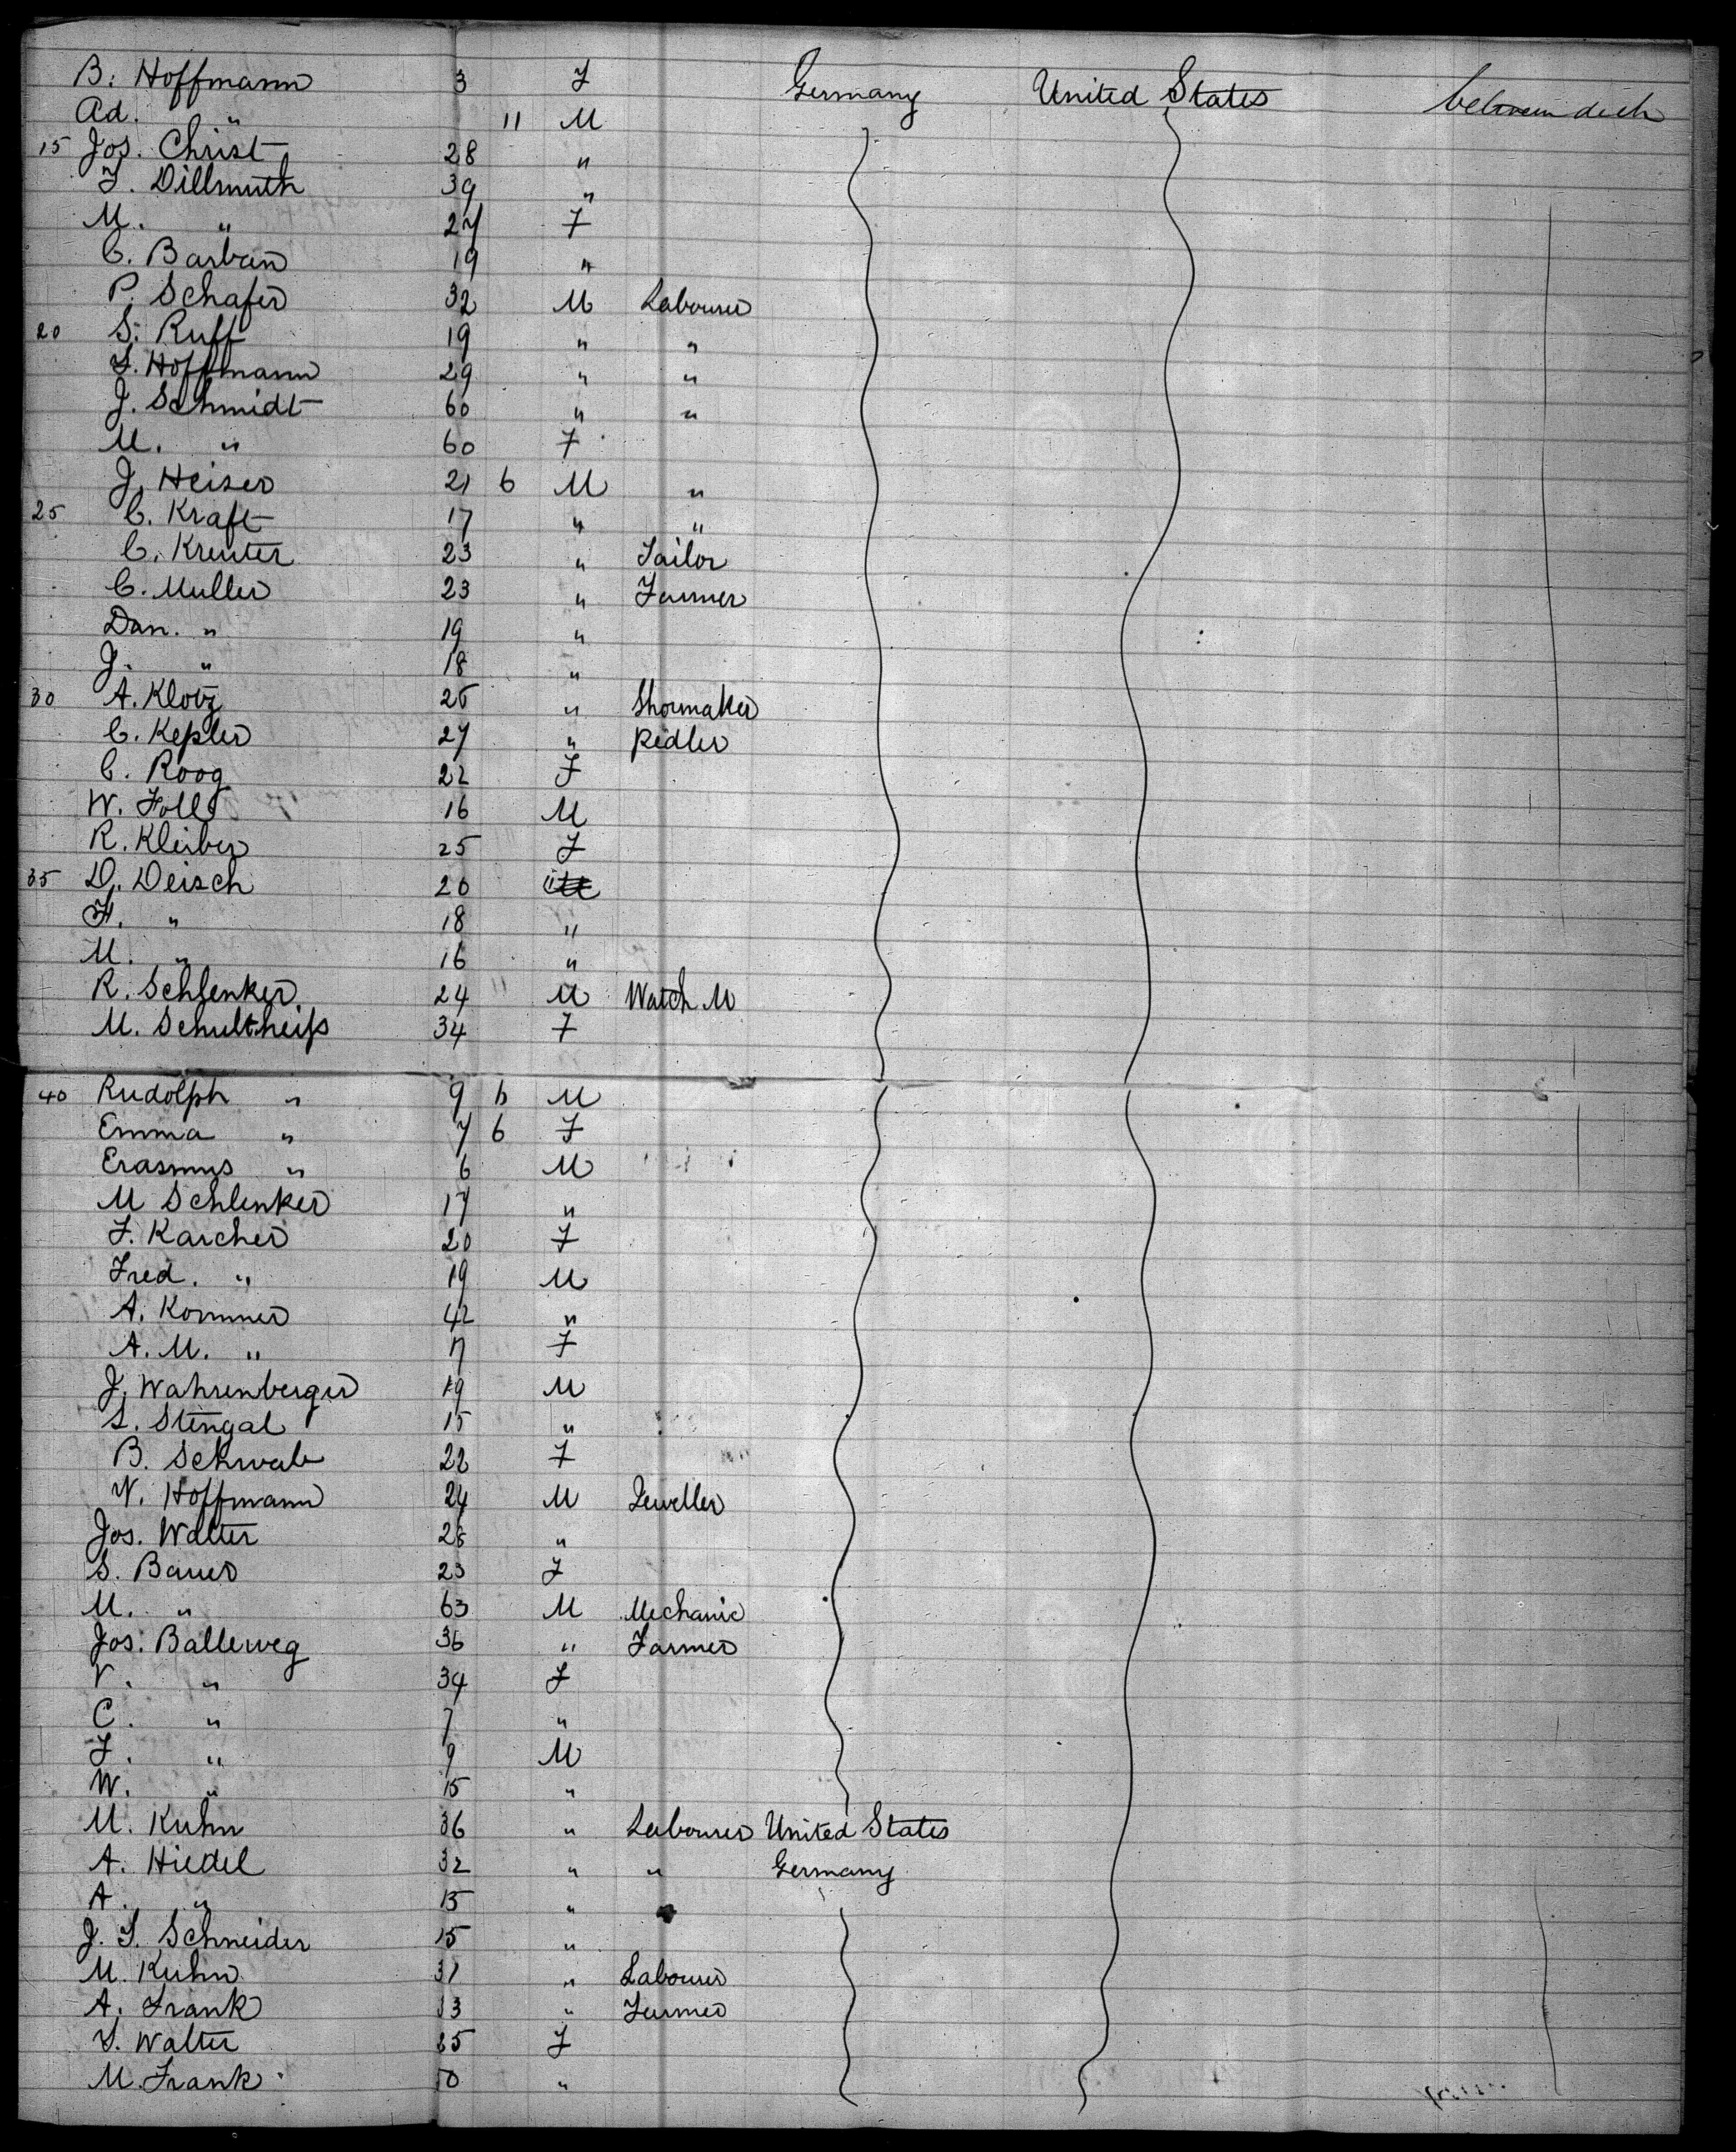 B. Hoffmann 3 F Germany United States between deck
Ad. " 11 M
15 Jos. Christ 28 "
F. Dillmuth 39 "
M. " 27 F
C. Barban 19 "
P. Schafer 32 M Labourer
20 S. Ruff 19 " "
L. Hoffmann 29 " "
J. Schmidt 60 " "
M. " 60 F
J. Heiser 21 6 M "
25 C. Kraft 17 " "
C. Kreuter 23 " Tailor
C. Muller 23 " Farmer
Dan. " 19 "
J. " 18 "
30 A. Klotz 25 " Shoemaker
C. Kepler 27 " Pedler
C. Roog 22 F
W. Foll 16 M
R. Kleiber 25 F
35 D. Deisch 20 "
F. " 18 "
M. " 16 "
R. Schlenker 24 M Watch M
M. Schultheiß 34 F
40 Rudolph " 9 6 M
Emma " 7 6 F
Erasmus " 6 M
M Schlenker 17 "
F. Karcher 20 F
Fred. " 19 M
A. Kommer 42 "
A. M. " 17 F
J. Wahrenberger 19 M
L. Stengal 15 "
B. Schwab 22 F
W. Hoffmann 24 M Jeweller
Jos. Walter 28 "
S. Bauer 23 F
M. " 63 M Mechanic
Jos. Balleweg 36 " Farmer
V. " 34 F
C. " 7 "
F. " 9 M
W. " 15 "
M. Kuhn 36 " Labourer United States
A. Hiedel 32 " " Germany
A. " 15 "
J. F. Schneider 15 "
M. Kuhn 31 " Labourer
A. Frank 33 " Farmer
S. Walter 25 F
M. Frank 50 "